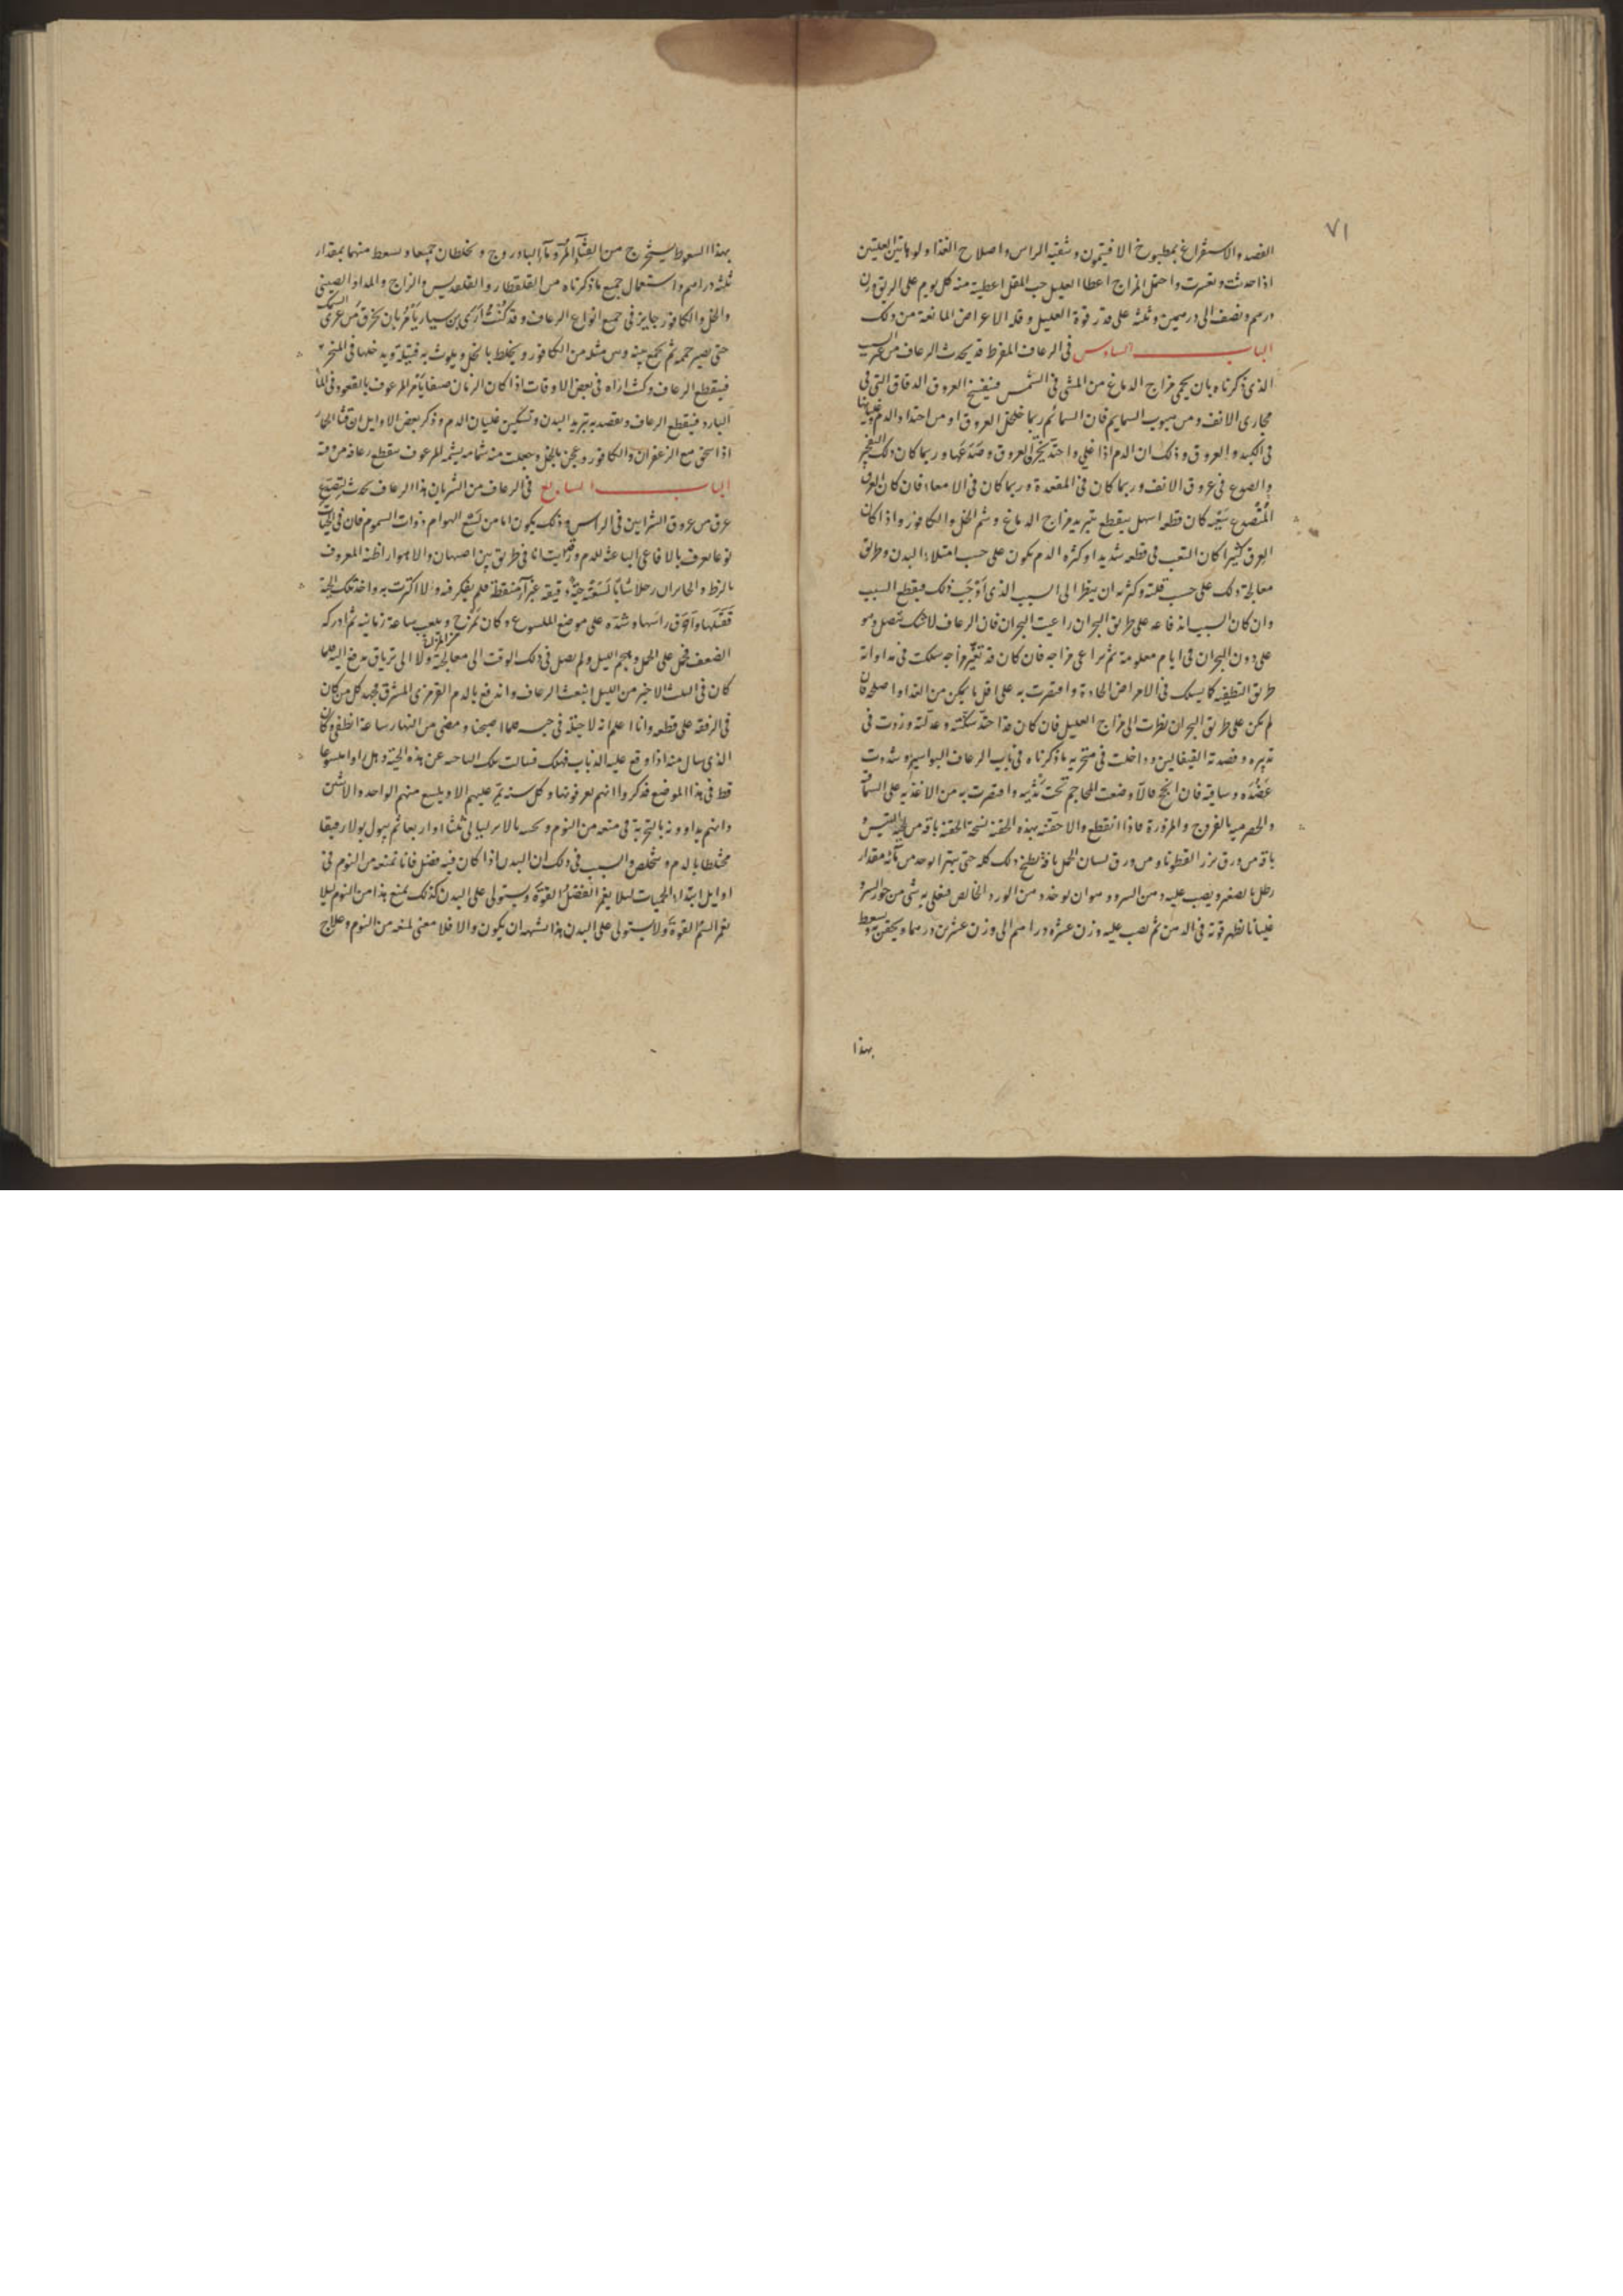 ٧١
الفصد والاستفراغ بمطبوخ الافتيمون وتنقية الراس واصلاح الغذا ولو هاتين العلتين
اذا حدثت وتعسرت واحتمل المزاج اعطا العليل حب المقل اعطيته منه كل يوم على الريق وزن
درهم ونصف الى درهمين وثلثة على قدر قوة العليل وقلة الاعراض المانعة من ذلك
الباب السادس في الرعاف المفرط قد يحدث الرعاف من
الذي ذكرناه بان يحمى مزاج الدماغ من المشى في الشمس فينفتح العروق الدقاق التى في
مجارى الانف ومن هبوب السمايم فان السمائم ربما خلخل العروق او من احتداد الدم وغليانها
في الكبد والعروق وذلك ان الدم اذا غلي واحتد يخرق العروق وصدعها وربما كان ذلك
والصدع في عروق الانف وربما كان في المقعدة وربما كان في الامعاء فان كان العرق
المتصدع كان قطعه اسهل ينقطع بتبريد مزاج الدماغ وشم الخل والكافور واذا كان
العرق كثيرا كان التعب في قطعه شديدا وكثرة الدم يكون على حسب امتلاء البدن وطريق
معالجة ذلك على حسب قلته وكثرته ان ينظر الى السبب الذي اوجب ذلك فيقطع السبب
وان كان السبب اندفاعه على طريق البحران راعيت البحران فان الرعاف لا شك متصل وهو
على دون البحران في ايام معلومة ثم يراعى مزاجه فان كان قد تغير مزاجه سلكت في مداواته
طريق التطفية كما يسلك في الامراض الحادة واقتصرت به على اقل ما يمكن من الغذا واصلحه فان
لم يكن على طريق البحران نظرت الى مزاج العليل فان كان قد احتد سكنته وعدلته وزدت في
تدبيره وفصدته القيفالين وداخلت في منخريه ما ذكرناه في باب الرعاف البواسير وشددت
عضده وساقيه فان انجح والا وضعت المحاجم تحت ثدييه واقتصرت به من الاغذيه على السماق
والحصرمية بالفروج والمزورة فاذا انقطع والا حقنته بهذه الحقنة نسخة الحقنة باقة من لحية التيس و
باقة من ورق بزر القطونا ومن ورق لسان الحمل باقة يطبخ ذلك كله حتى يتهرا يوخذ من مائه مقدار
رطل يصفى ويصب عليه دهن السرو وهو ان يوخذ دهن الورد الخالص فيغلى به شى من جوز السرو
غليانا يظهر قوته في الدهن ثم يصب عليه وزن عشرة دراهم الى وزن عشرين درهما ويحقن به ويسعط
بهذا
بهذا السعوط يستخرج من القثاء المر وماء البادروج ويخلطان جميعا ويسعط منهما بمقدار
ثلثه دراهم واستعمال جميع ما ذكرناه من القلقطار والقلقديس والزاج والمداد الصينى
والخل والكافور جايز في جميع انواع الرعاف وقد كنت ارى بن سيار يامر بان يحرق من غرى السمك
حتى يصير حممه ثم يجمع منه ومن مثله من الكافور ويخلط بالخل ويلوث به فتيلة ويدخلها في المنخر
فينقطع الرعاف وكنت اراه في بعض الاوقات اذا كان الزمان صيفا يامر المرعوف بالقعود في الماء
البارد فينقطع الرعاف ويقصد به تبريد البدن وتسكين غليان الدم وذكر بعض الاوايل ان قثا الحمار
اذا سحق مع الزعفران والكافور وعجن بالخل وجعلت منه شمامه يشمه المرعوف ينقطع رعافه من وقته
الباب السابع في الرعاف من الشريان هذا الرعاف يحدث لتصدع
عرق من عروق الشرايين في الراس وذلك يكون اما من لسع الهوام ذوات السموم فان في الحيات
نوعا يعرف بالافاعى الباعثة للدم ورايت انا في طريق بين اصبهان والاهواز اظنه المعروف
بالزط والخابران رجلا شابا لسعته حية دقيقة غبرا منقطة فلم يفكر فيه ولا اكترث به واخذ تلك الحية
فقتلها ودق راسها وشده على موضع الملسوع وكان يمزح ويلعب ساعة زمانيه ثم ادركه
الضعف فحمل على المحمل وهجم الليل ولم نصل في ذلك الوقت الى معالجته ولا الى ترياق يدفع اليه فلما
كان في الثلث الاخير من الليل انبعث الرعاف واندفع بالدم القرمزى المشرق فجهد كل من كان
في الرفقة على قطعه وانا اعلم انه لا حيلة في حبسه فلما اصبحنا ومضى من النهار ساعة انطفى وكان
الذي سال منه اذا وقع عليه الذباب فسالت تلك الناحيه عن هذه الحية وهل لسعوا
قط في هذا الموضع فذكروا انهم يعرفونها وكل سنة يمر عليهم الا ويلسع منهم الواحد والاثنين
وانهم يداوونه بالتجربة في منعه من النوم وتحسيه بالامراق ليالى ثلثا او اربعا ثم يبول بولا رقيقا
مختلطا بالدم ويتخلص والسبب في ذلك ان البدن اذا كان فيه فضل فانا نمنعه من النوم في
اوايل ابتداء الحميات ليلا يغمر الفضل القوة ويستولى على البدن كذلك يمنع هذا من النوم ليلا
يغمر السم القوة ولا يستولى على البدن هذا يشبه ان يكون والا فلا معنى لمنعه من النوم وعلاج